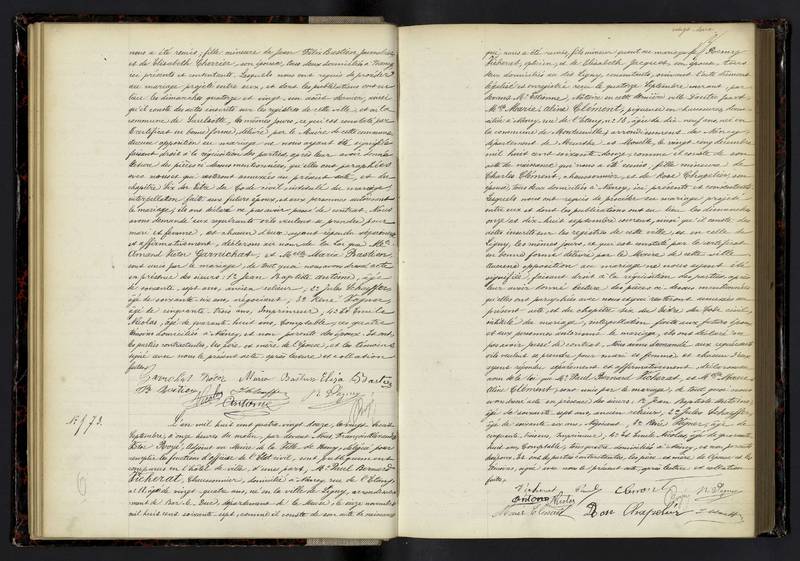 nous a été remis; fille mineure de Jean Félix Bastien, journalier
et de Elisabeth Cherrier, son épouse, tous deux domiciliés à Nancy
ici présents et consentants. Lesquels nous ont requis de procéder
au mariage projeté entre eux, et dont les publications ont eu
lieu les dimanches quatorze et vingt un août dernier, ainsi
qu'il conste des actes inscrits sur les registres de cette ville, et en la
commune de les mêmes jours, ce qui est constaté par
Certificat en bonne forme, délivré par le Maire de cette commune
aucune opposition au mariage ne nous ayant été signifiée
faisant droit à la réquisition des parties, après leur avoir donné
lecture des pièces ci-dessus mentionnées, qu'elles ont paraphées
avec nous et qui resteront annexées au présent acte, et du
chapitre six du titre du Code civil intitulé du mariage,
interpellation faite aux futurs époux, et aux personnes autorisant
le mariage, ils ont déclaré ne pas avoir passé de contrat. Nous
avons demandé aux représentés s'ils veulent se prendre pour
mari et femme, et chacun d'eux ayant répondu séparément
et affirmativement, déclarons au nom de la Loi que Mr
Amand Victor Garnichat, et Melle Marie Bastien
sont unis par le mariage, de tout quoi nous avons dressé acte
en présence des sieurs, 1° Jean Baptiste Antoine, âgé
de soixante sept ans, ancien relieur, 2° Jules Schaeffer,
âgé de soixante six ans, négociant, 3° René Vagner,
âgé de cinquante trois ans, Imprimeur, 4° Emile
Nicolas, âgé de quarante huit ans, Comptable, ces quatre
témoins domiciliés à Nancy, et non parents des époux. Et ont,
les parties contractantes, les père et mère de l'épouse, et les témoins
signé avec nous le présent acte, après lecture et collation
faites.
Garnichat Victor Marie Bastien Eliza
Bastien
Antoine
N° 573.
L'an mil huit cent quatre vingt douze, le vingt huit
Septembre, à onze heures du matin, par devant nous
Victor Adjoint au Maire de la Ville de Nancy, délégué pour
remplir les fonctions d'officier de l'Etat civil, sont publiquement
comparus en l'hôtel de ville, d'une part, Mr Paul Bernard
Vicherat, Chaussonnier, domicilié à Nancy, rue de l'Etang,
âgé de vingt quatre ans, né en la ville de Ligny, arrondisse-
ment de Bar-le-Duc, département de la Meuse, le onze novembre
mil huit cent soixante sept, comme il conste de son acte de naissance
qui nous a été remis, fils mineur quant au mariage de
Vicherat, opticien, et de Elisabeth Jacquet, son épouse, tous
deux domiciliés au dit Ligny, consentants, suivant l'acte
légalisé et enregistré, reçu le quatorze Septembre courant par
devant Me Etienne, Notaire en cette dernière ville. D'autre part
Melle Marie Aline Clément, piqueuse en chaussures, domi-
ciliée à Nancy, rue de l'Etang, n° 18, âgée de dix neuf ans, née en
la commune de arrondissement de Nancy,
département de Meurthe et Moselle, le vingt cinq décembre
mil huit cent soixante douze, comme il conste de son
acte de naissance qui nous a été remis, fille mineure de
Charles Clément, chaussonnier, et de Rose Chapelier son
épouse, tous deux domiciliés à Nancy, ici présents et consentants.
Lesquels nous ont requis de procéder au mariage projeté
entre eux et dont les publications ont eu lieu les dimanches
onze et dix huit septembre courant, ainsi qu'il conste des
actes inscrits sur les registres de cette ville, et en celle de
Ligny, les mêmes jours, ce qui est constaté par le certificat
en bonne forme délivré par le Maire de cette ville
aucune opposition au mariage ne nous ayant été
signifiée, faisant droit à la réquisition des parties, après
leur avoir donné lecture des pièces ci-dessus mentionnées
qu'elles ont paraphées avec nous et qui resteront annexées au
présent acte, et du chapitre six du titre du Code civil
intitulé du mariage, interpellation faite aux futurs époux
et aux personnes autorisant le mariage, ils ont déclaré ne
pas avoir passé de contrat. Nous avons demandé aux représentés
s'ils veulent se prendre pour mari et femme, et chacun d'eux
ayant répondu séparément et affirmativement, déclarons au
nom de la Loi que Mr Paul Bernard Vicherat, et Melle Marie
Aline Clément, sont unis par le mariage, de tout quoi nous
avons dressé acte en présence des sieurs, 1° Jean Baptiste Antoine,
âgé de soixante sept ans, ancien relieur, 2° Jules Schaeffer,
âgé de soixante six ans, Négociant, 3° René Vagner, âgé de
cinquante trois ans, Imprimeur, 4° Emile Nicolas, âgé de quarante
huit ans, Comptable, ces quatre domiciliés à Nancy, et non parents
des époux. Et ont les parties contractantes, les père et mère de l'épouse et les
témoins, signé avec nous le présent acte, après lecture et collation
faites.
Vicherat Clément
Antoine
Marie Clément Rose Chapelier